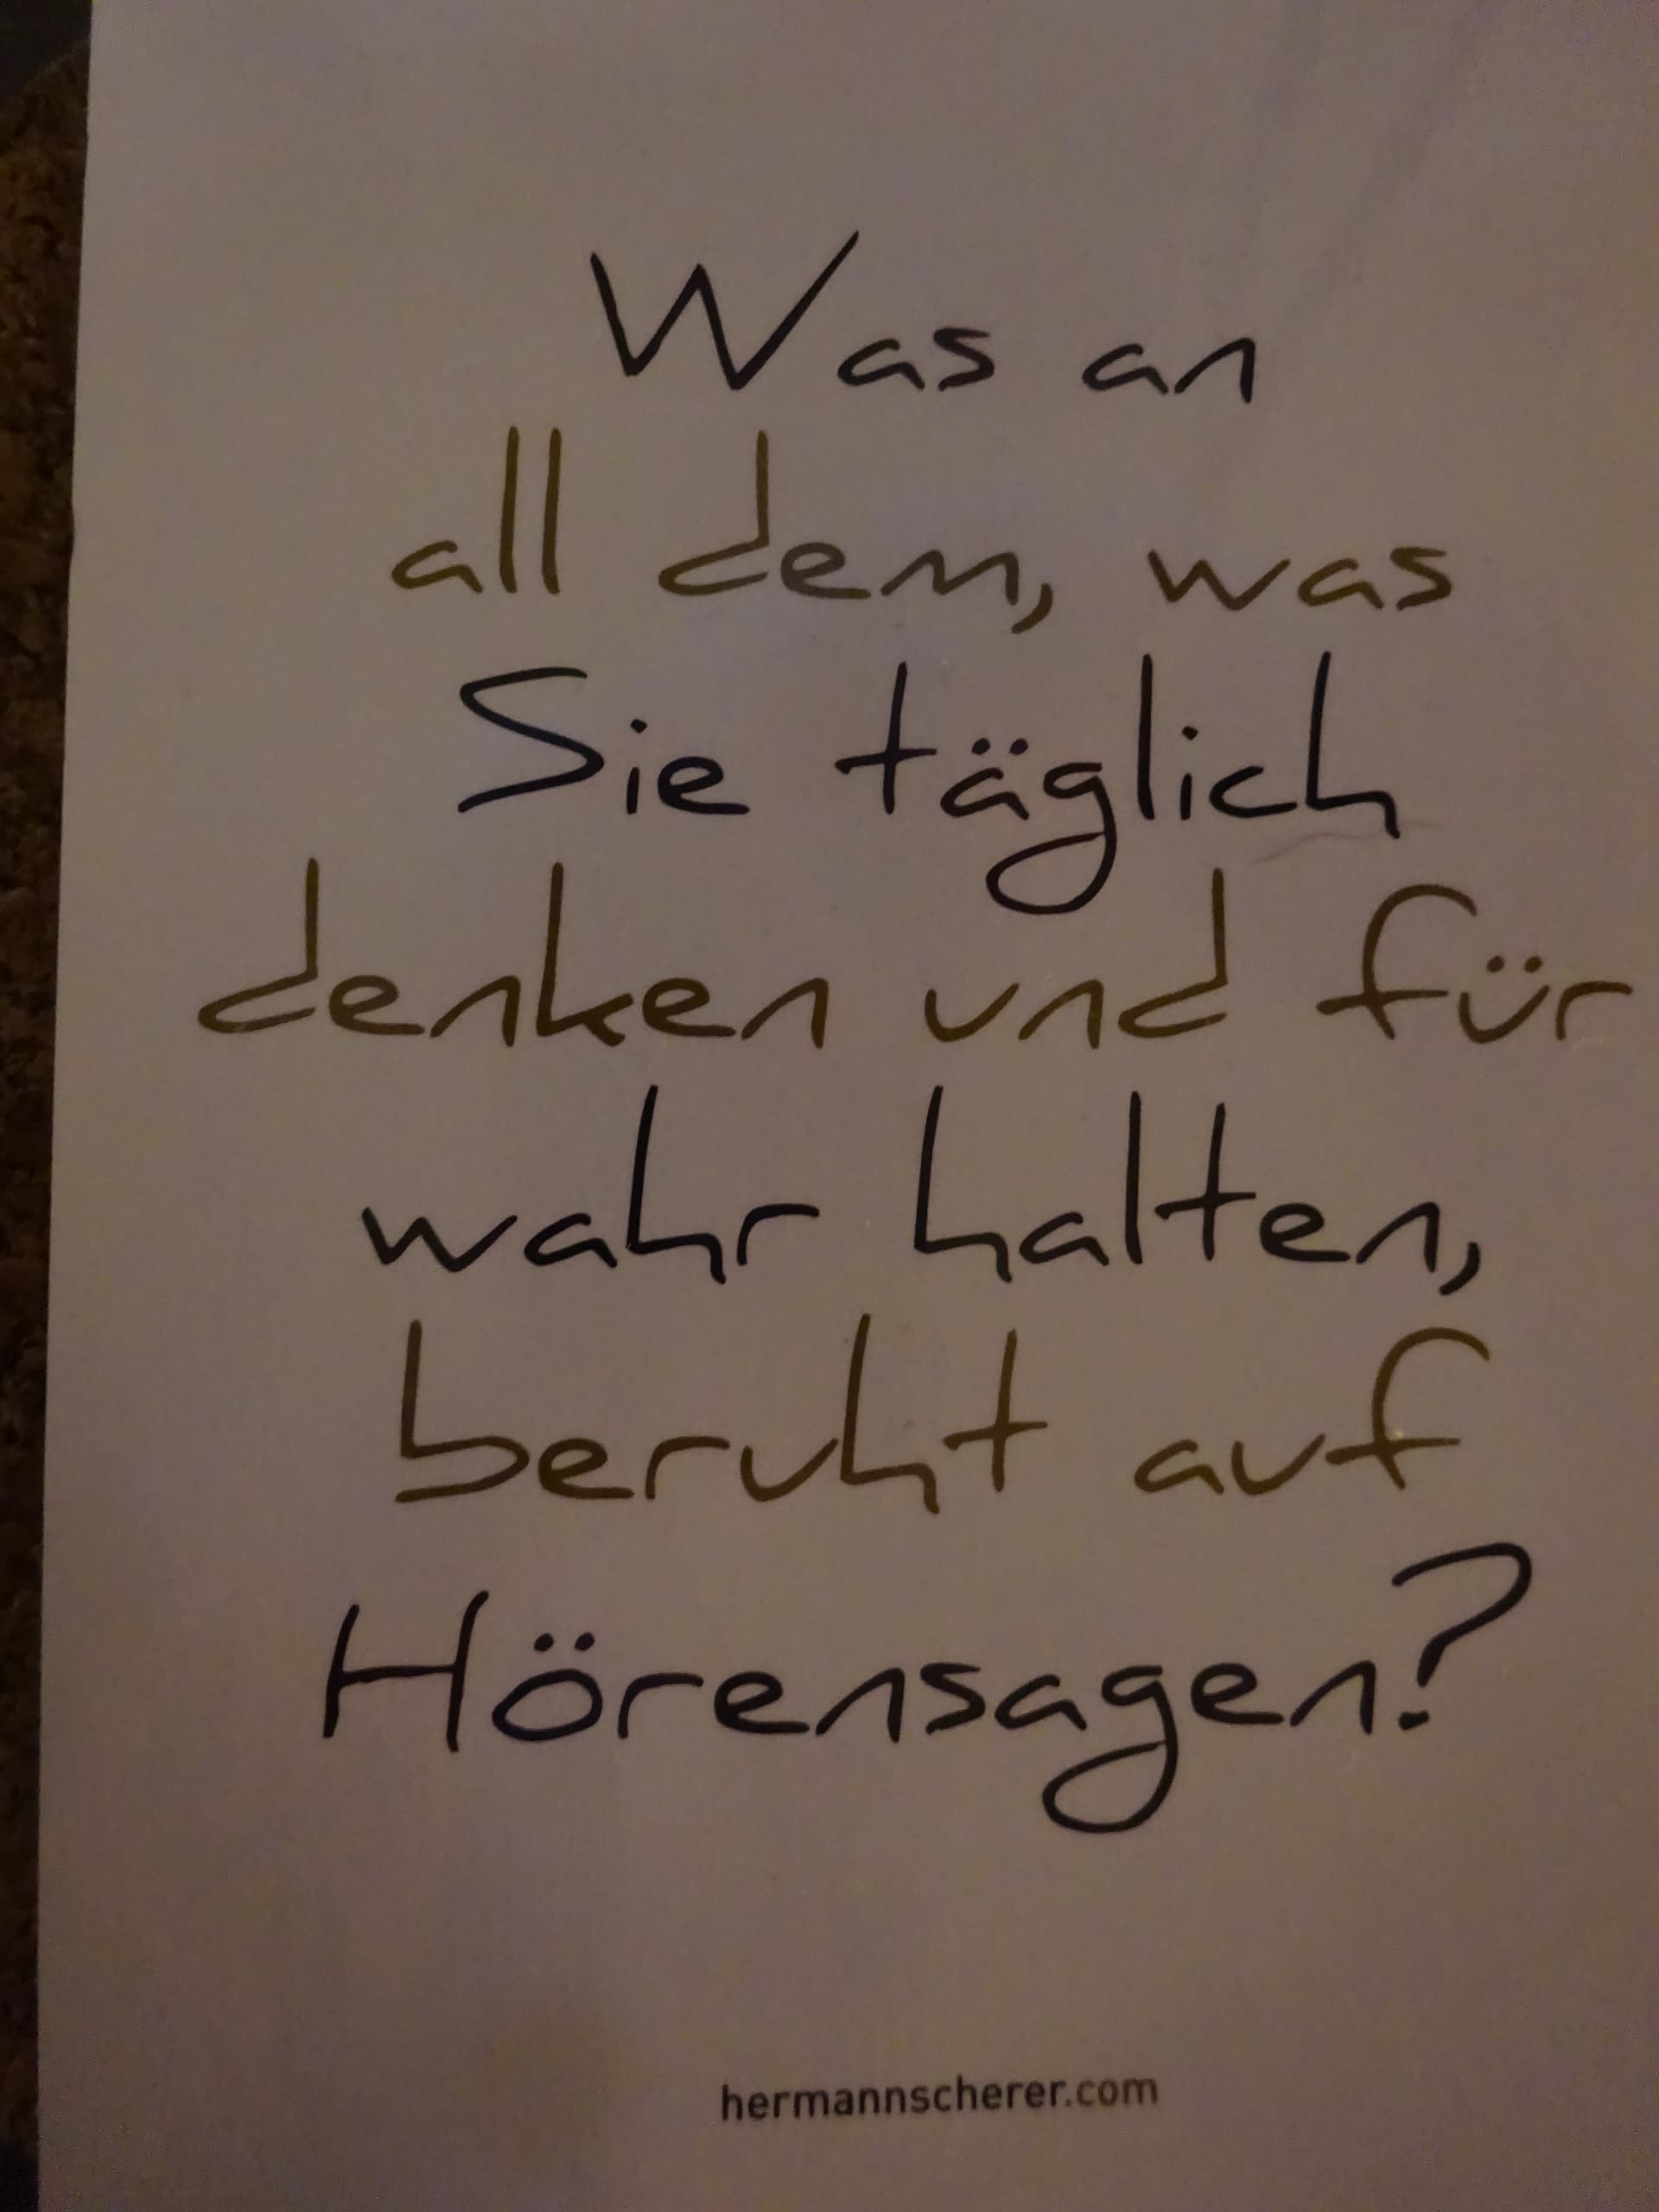 Was an
all dem, was
Sie täglich
denken und für
wahr halten,
beruht auf
Hörensagen?
hermannscherer.com